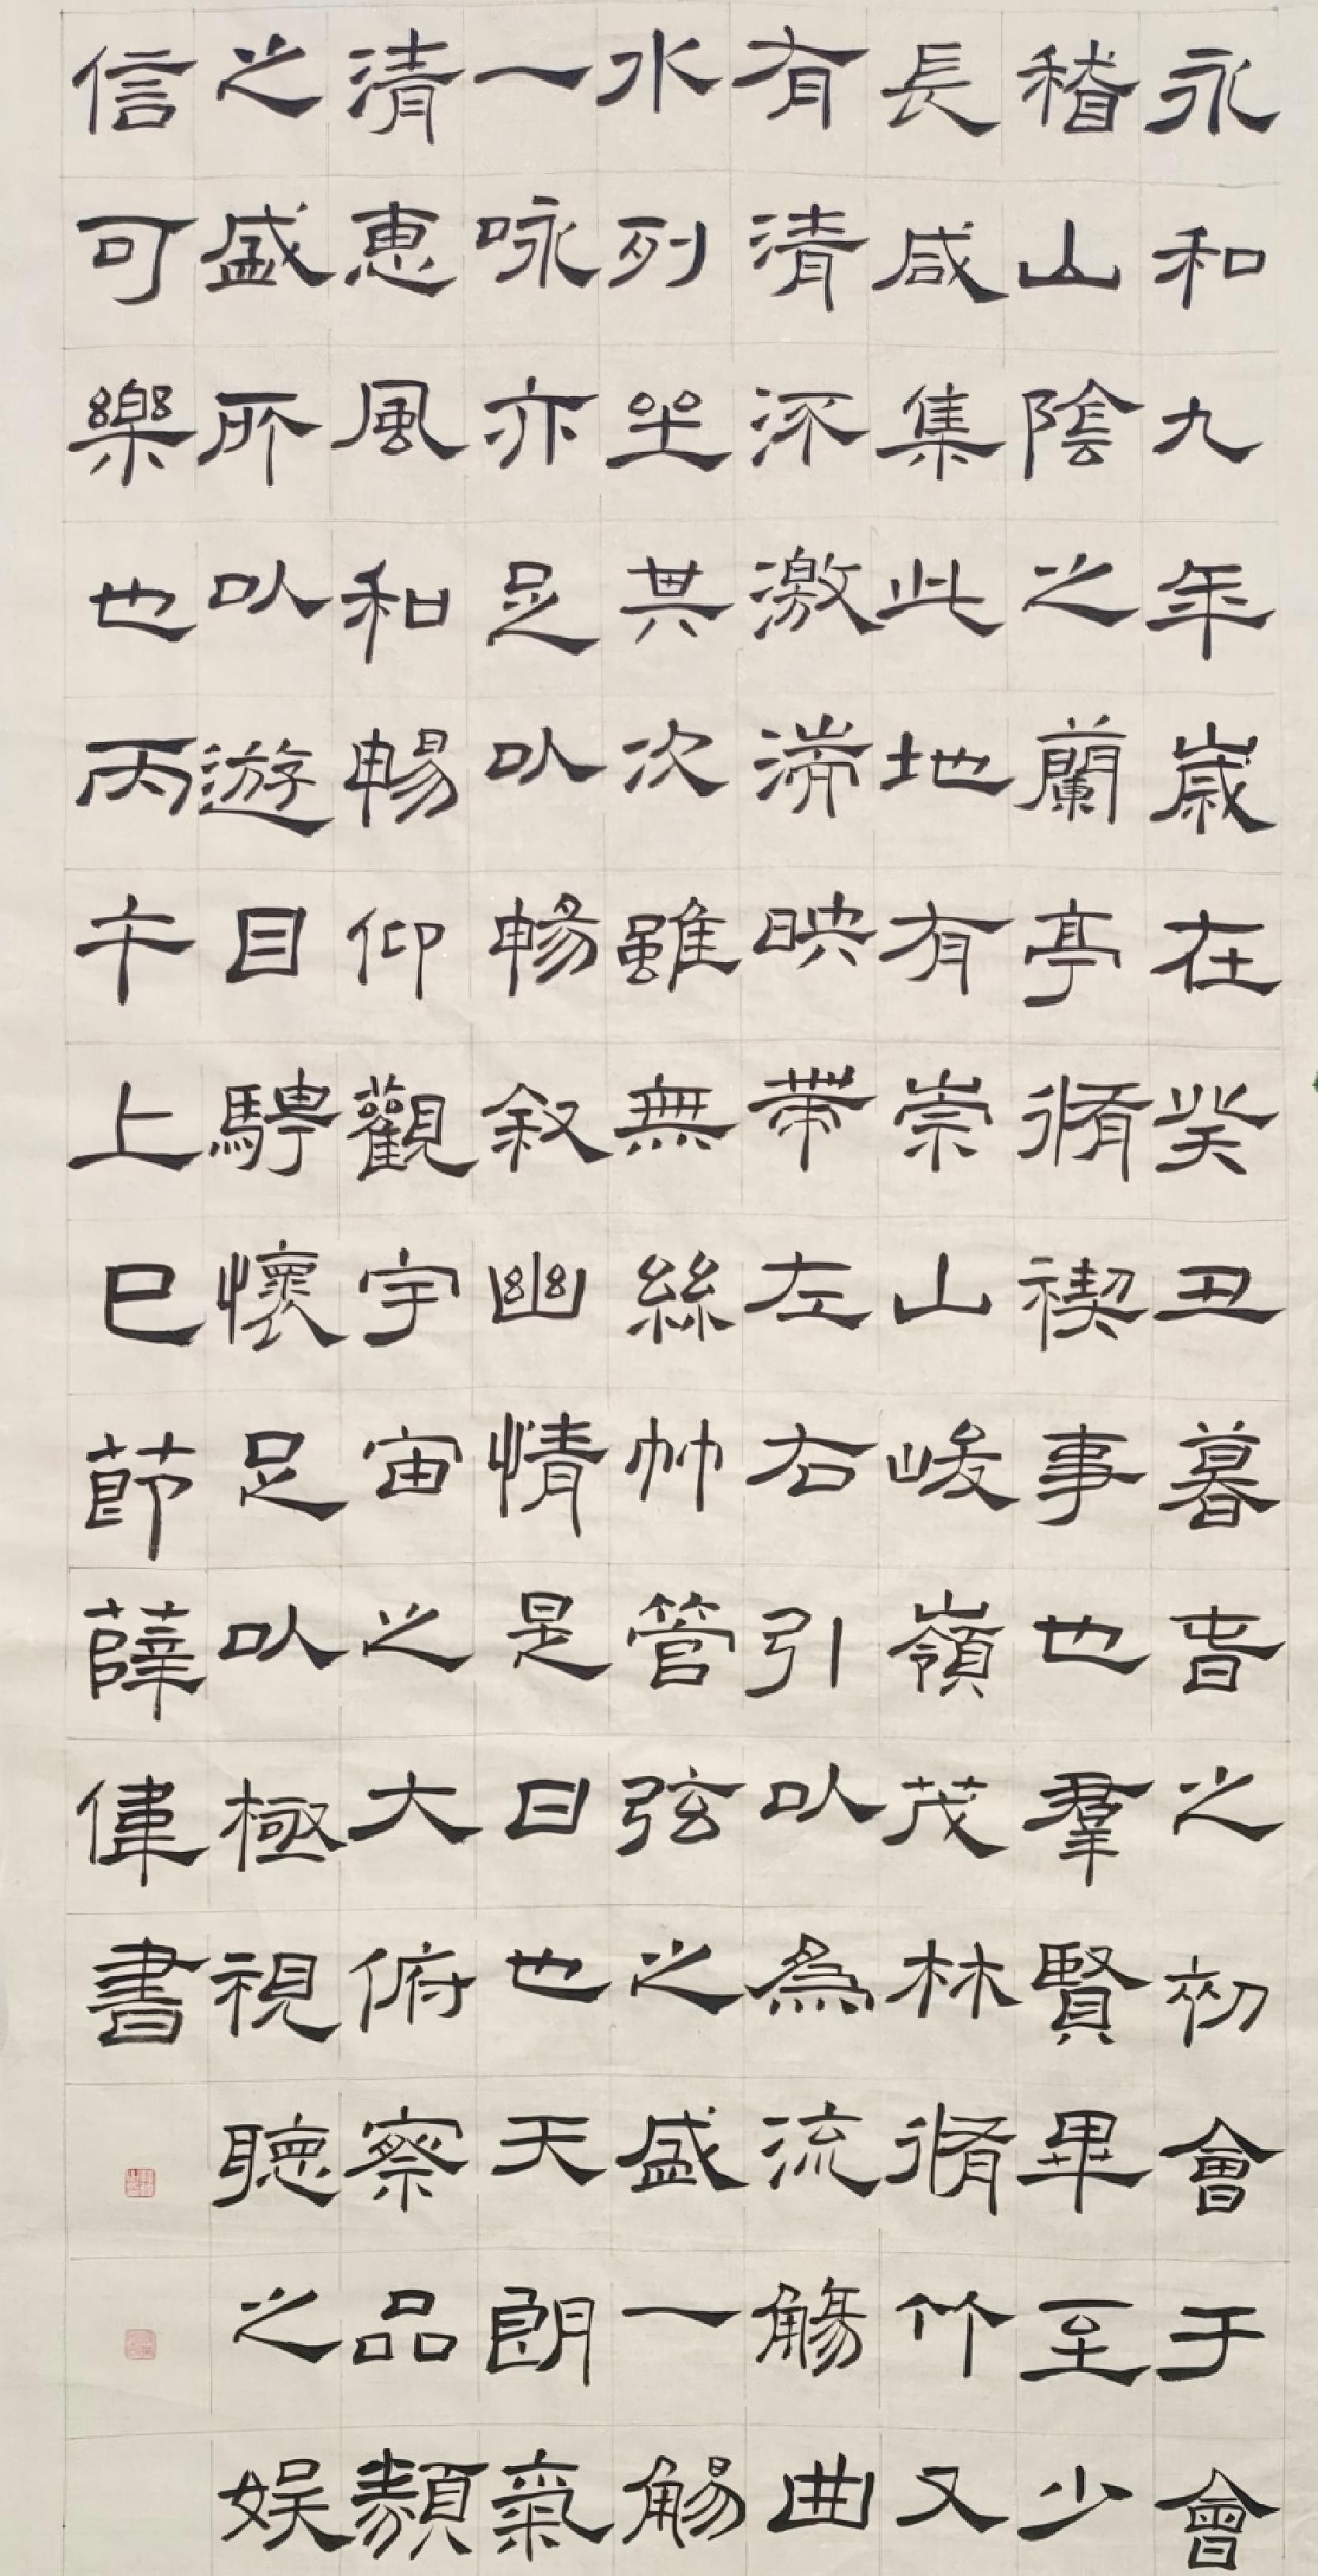 永和九年歲在癸丑暮春之初會于會
稽山陰之蘭亭脩禊事也羣賢畢至少
長咸集此地有崇山峻嶺茂林脩竹又
有清流激湍映帶左右引以為流觴曲
水列坐其次雖無絲竹管弦之盛一觴
一咏亦足以暢叙幽情是日也天朗氣
清惠風和暢仰觀宇宙之大俯察品類
之盛所以遊目騁懷足以極視聽之娛
信可樂也丙午上巳節薛偉書